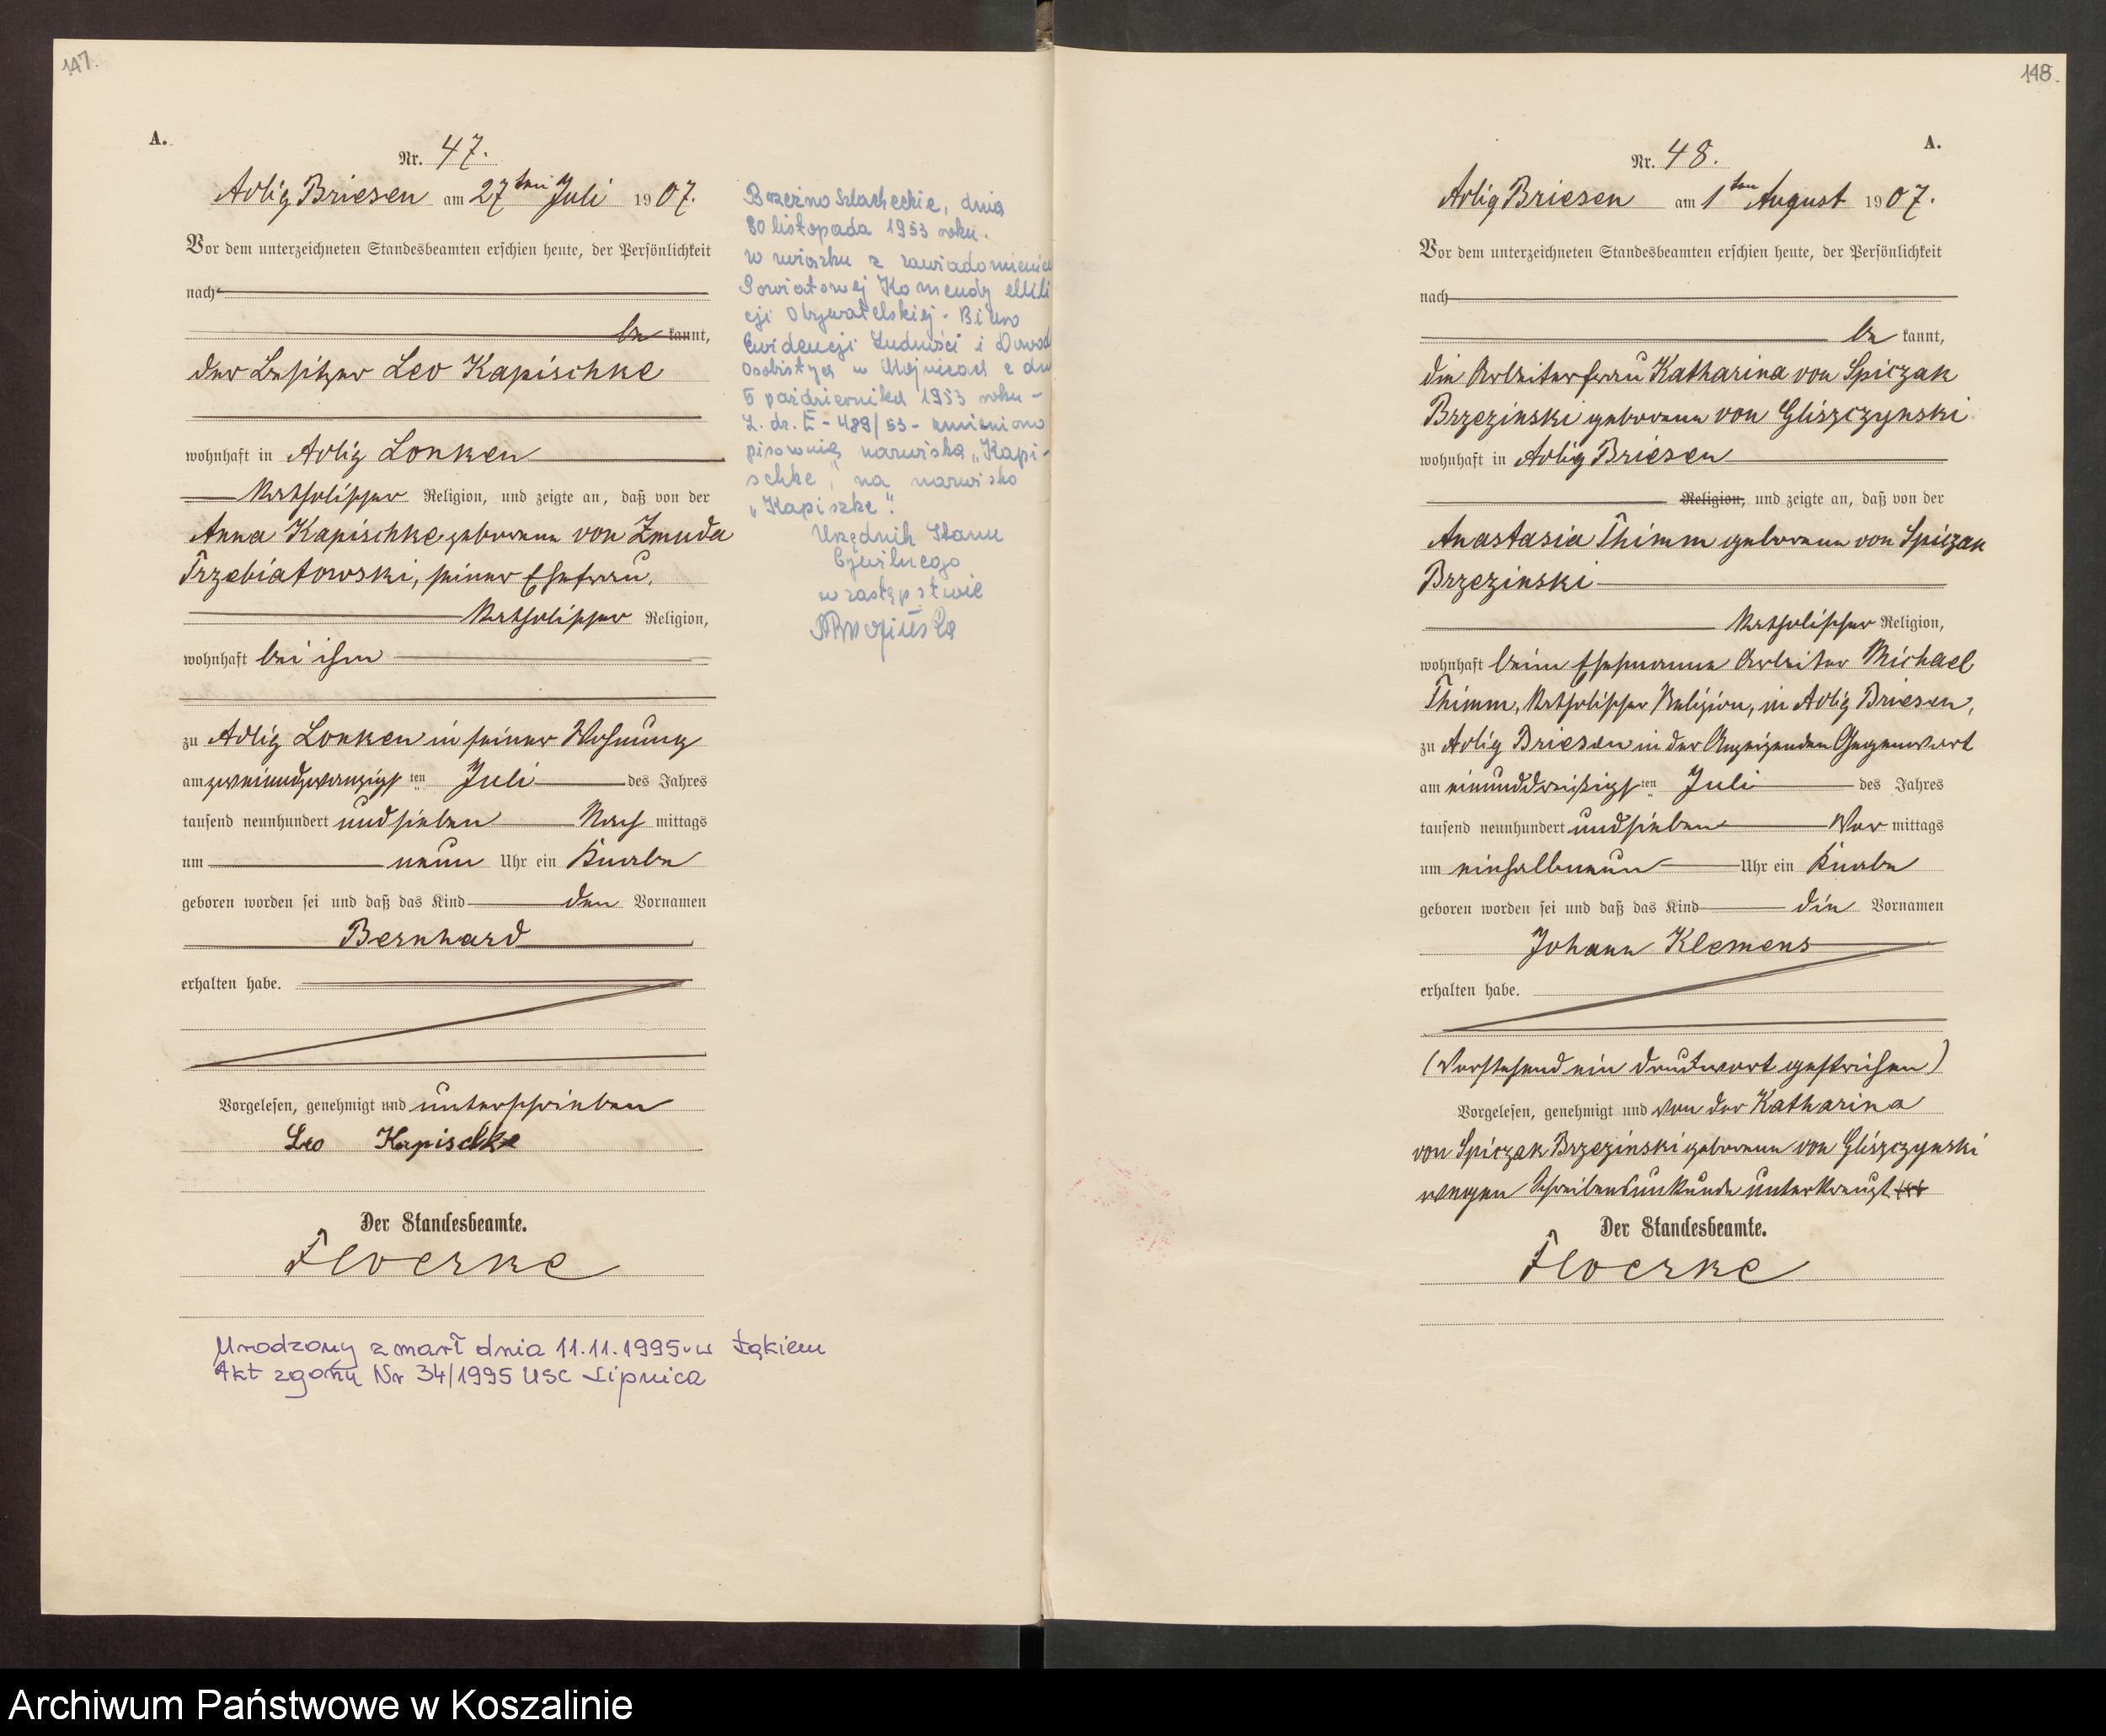 147.
A.
Nr. 47.
Adlig Briesen am 27ten Juli 1907.
Vor dem unterzeichneten Standesbeamten erschien heute, der Persönlichkeit
nach
be kannt,
der Besitzer Leo Kapischke
wohnhaft in Adlig Lonken
katholischer Religion, und zeigte an, daß von der
Anna Kapischke geborene von Zmuda
Trzebiatowski, seiner Ehefrau,
katholischer Religion,
wohnhaft bei ihm
zu Adlig Lonken in seiner Wohnung
am zweiundzwanzigsten Juli des Jahres
tausend neunhundert und sieben Nach mittags
um neun Uhr ein Knabe
geboren worden sei und daß das Kind den Vornamen
Bernhard
erhalten habe.
Vorgelesen, genehmigt und unterschrieben
Leo Kapischke
Der Standesbeamte.
Floerke
Urodzony zmarł dnia 11.11.1995 w Łąkiem
Akt zgonu Nr 34/1995 USC Lipnica
Brzeźno Szlacheckie, dnia
30 listopada 1953 roku.
w związku z zawiadomieniem
Powiatowej Komendy Mili
cji Obywatelskiej - Biuro
Ewidencji Ludności i Dowod
Osobistych w Chojnicach z dn
5 października 1953 roku -
L. dz. E - 489/53 - zmieniono
pisownię nazwiska „Kapi-
schke", na nazwisko
„Kapiszke".
Urzędnik Stanu
Cywilnego
w zastępstwie
148.
A.
Nr. 48.
Adlig Briesen am 1ten August 1907.
Vor dem unterzeichneten Standesbeamten erschien heute, der Persönlichkeit
nach
be kannt,
die Arbeiterfrau Katharina von Spiczak
Brzezinski geborene von Gliszczynski
wohnhaft in Adlig Briesen
Religion, und zeigte an, daß von der
Anastasia Thimm geborene von Spiczak
Brzezinski
katholischer Religion,
wohnhaft beim Ehemanne Arbeiter Michael
Thimm, katholischer Religion, in Adlig Briesen,
zu Adlig Briesen in der Anzeigenden Gegenwart
am einunddreißigsten Juli des Jahres
tausend neunhundert und sieben Vor mittags
um einhalbneun Uhr ein Knabe
geboren worden sei und daß das Kind die Vornamen
Johann Klemens
erhalten habe.
(Vorstehend ein Druckwort gestrichen)
Vorgelesen, genehmigt und von der Katharina
von Spiczak Brzezinski geborene von Gliszczynski
wegen Schreibensunkunde unterkreuzt +++
Der Standesbeamte.
Floerke
Archiwum Państwowe w Koszalinie